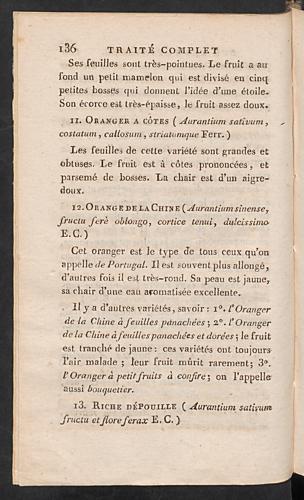 136 TRAITÉ COMPLET
Ses feuilles sont très-pointues. Le fruit a au
fond un petit mamelon qui est divisé en cinq
petites bosses qui donnent l'idée d'une étoile.
Son écorce est très-épaisse, le fruit assez doux.
11. ORANGER A CÔTES ( Aurantium sativum,
costatum, callosum, striatumque Ferr. )
Les feuilles de cette variété sont grandes et
obtuses. Le fruit est à côtes prononcées, et
parsemé de bosses. La chair est d'un aigre-
doux.
12. ORANGE DE LA CHINE ( Aurantium sinense,
fructu ferè oblongo, cortice tenui, dulcissimo
E. C. )
Cet oranger est le type de tous ceux qu'on
appelle de Portugal. Il est souvent plus allongé,
d'autres fois il est très-rond. Sa peau est jaune,
sa chair d'une eau aromatisée excellente.
Il y a d'autres variétés, savoir : 1°. l'Oranger
de la Chine à feuilles panachées ; 2°. l'Oranger
de la Chine à feuilles panachées et dorées ; le fruit
est tranché de jaune : ces variétés ont toujours
l'air malade ; leur fruit mûrit rarement ; 3°.
l'Oranger à petit fruits à confire ; on l'appelle
aussi bouquetier.
13. RICHE DÉPOUILLE ( Aurantium sativum
fructu et flore ferax E. C. )